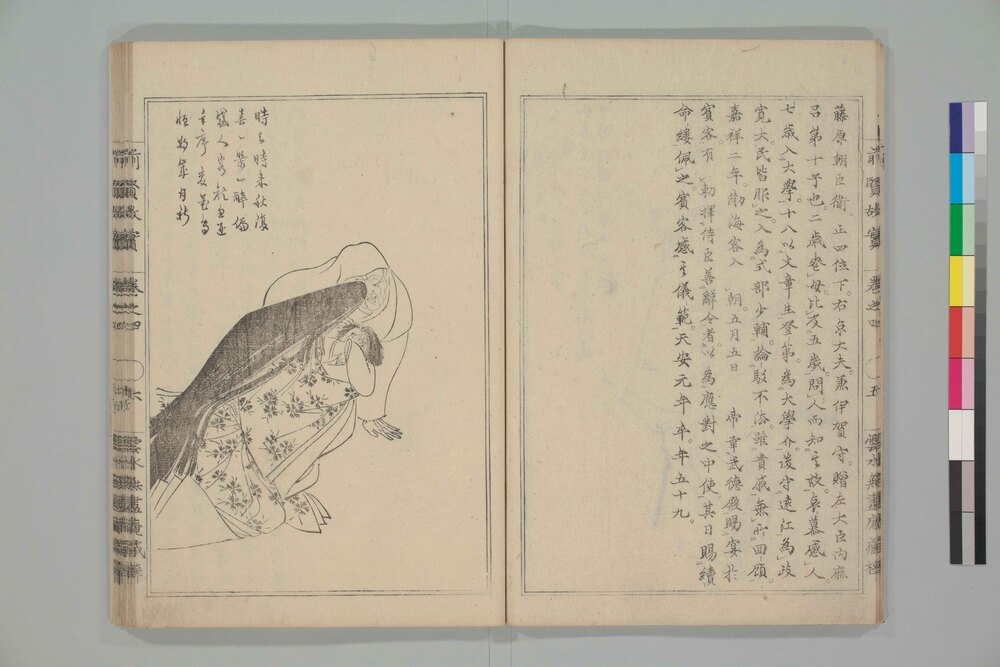 藤原朝臣衛。正四位下。右京大夫兼伊賀守。贈左大臣内麻
呂第十子也。二歳喪母。比及五歳。問人而知其故。哀慕感人。
七歳入大學。十八以文章生登第。為大學介。後守遠江。為政
寛大。民皆服之。入為式部少輔。論駁不涂。雖貴戚無所回顧。
嘉祥二年。渤海客入朝。五月五日帝幸武德殿賜宴於
賓客。有勅擇侍臣善辭令者。以為應對之中使。其日賜續
命縷佩之。賓客感其儀範。天安元年卒。年五十九。
前賢故實 卷之四 五
時々時来秋復
春一榮一醉偏
感人
前賢故實 卷之四 六